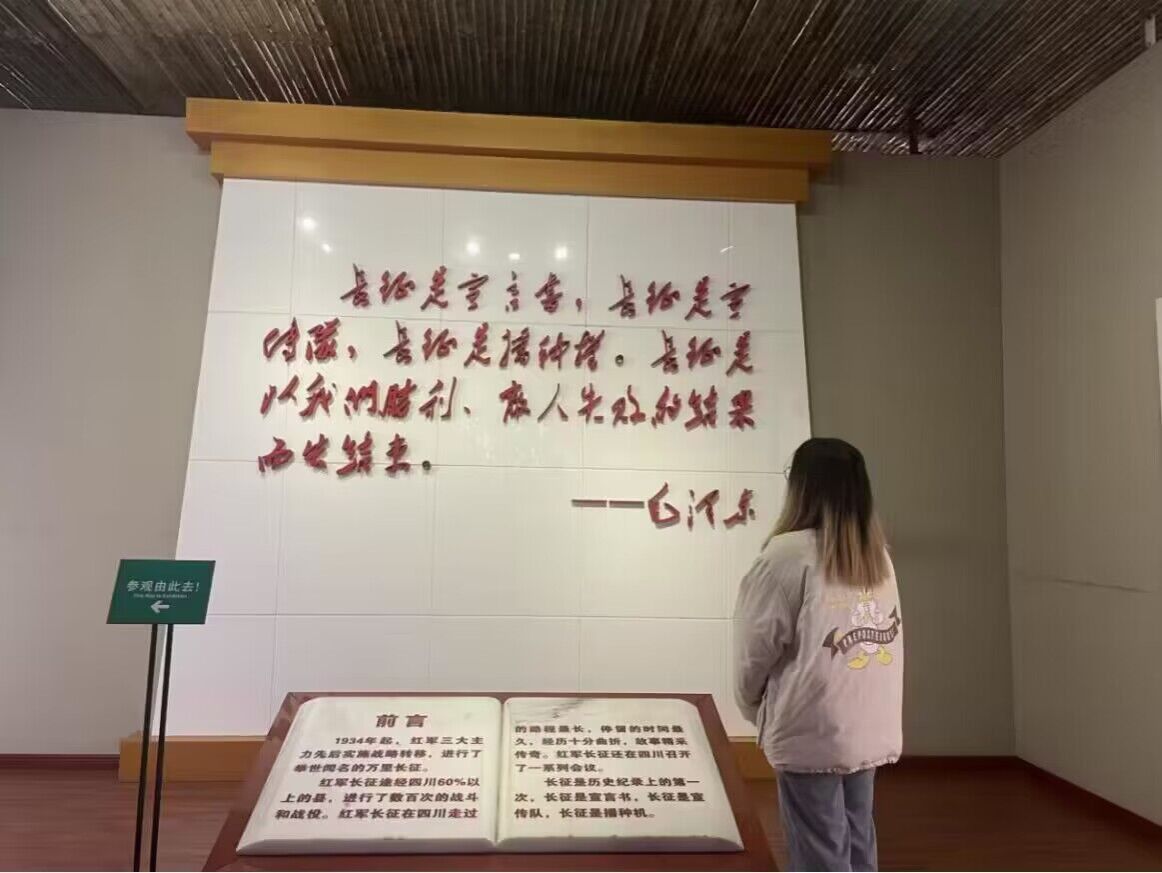 长征是宣言书，长征是宣
传队，长征是播种机。长征是
以我們勝利、敌人失败的结果
而告结束。
——毛泽东
参观由此去！
This Way to Exhibition
前言
1934年起，红军三大主
力先后实施战略转移，进行了
举世闻名的万里长征。
红军长征途经四川60%以
上的县，进行了数百次的战斗
和战役。红军长征在四川走过
的路程最长，停留的时间最
久，经历十分曲折，故事精采
传奇。红军长征还在四川召开
了一系列会议。
长征是历史纪录上的第一
次，长征是宣言书，长征是宣
传队，长征是播种机。
PREPOSTEROUS